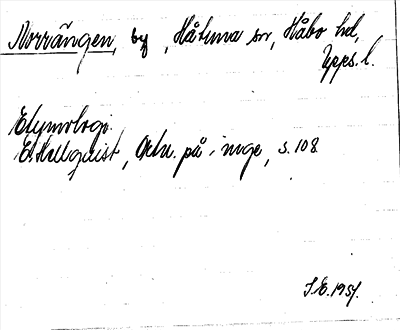 Norrängen, by, Håtuna sn, Håbo hd,
Upps. l.
Etymologi.
E. Hellquist, Ortn. på -inge, s. 108.
S.E. 1951.